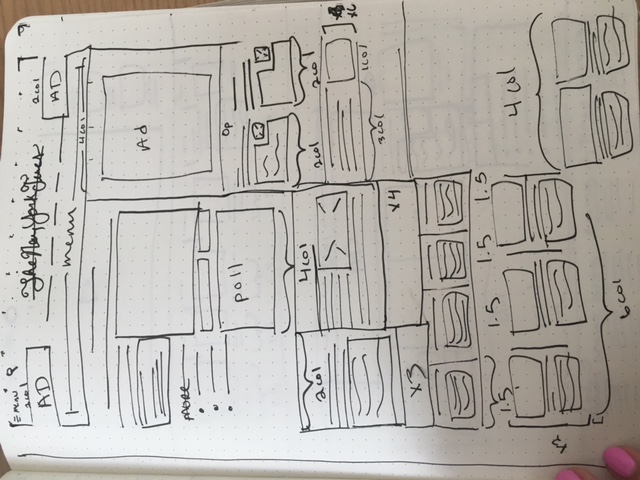 MENU
2 COl
The New York Times
2 COl
AD
AD
menu
4 COl
Ad
MORE
poll
Op
2 COl
4 COl
2 COl
2 COl
x6
3COl
1COl
x4
x3
1.5
1.5
1.5
1.5
4 COl
x2
6 COl